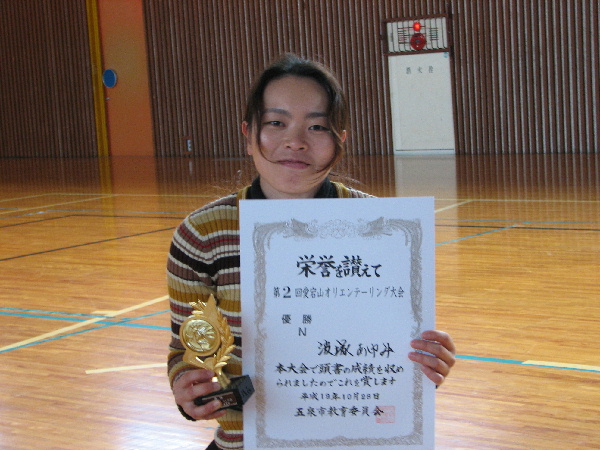 消火栓
栄誉を讃えて
第2回愛宕山オリエンテーリング大会
優勝
N
波塚あゆみ
本大会で頭書の成績を収め
られましたのでこれを賞します
平成19年10月28日
五泉市教育委員会